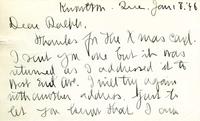 Knowlton. Que. Jan. 8. '46
Dear Ralph.
Thanks for the Xmas card.
I sent you one but it was
returned as I addressed it to
West 2nd Ave. I will try again
with another address. Just to
let you know that I am